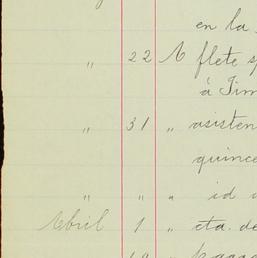 en la
" 22 A flete
á
" 31 " asisten
quince
" " " id
Abril 1 " cta. de